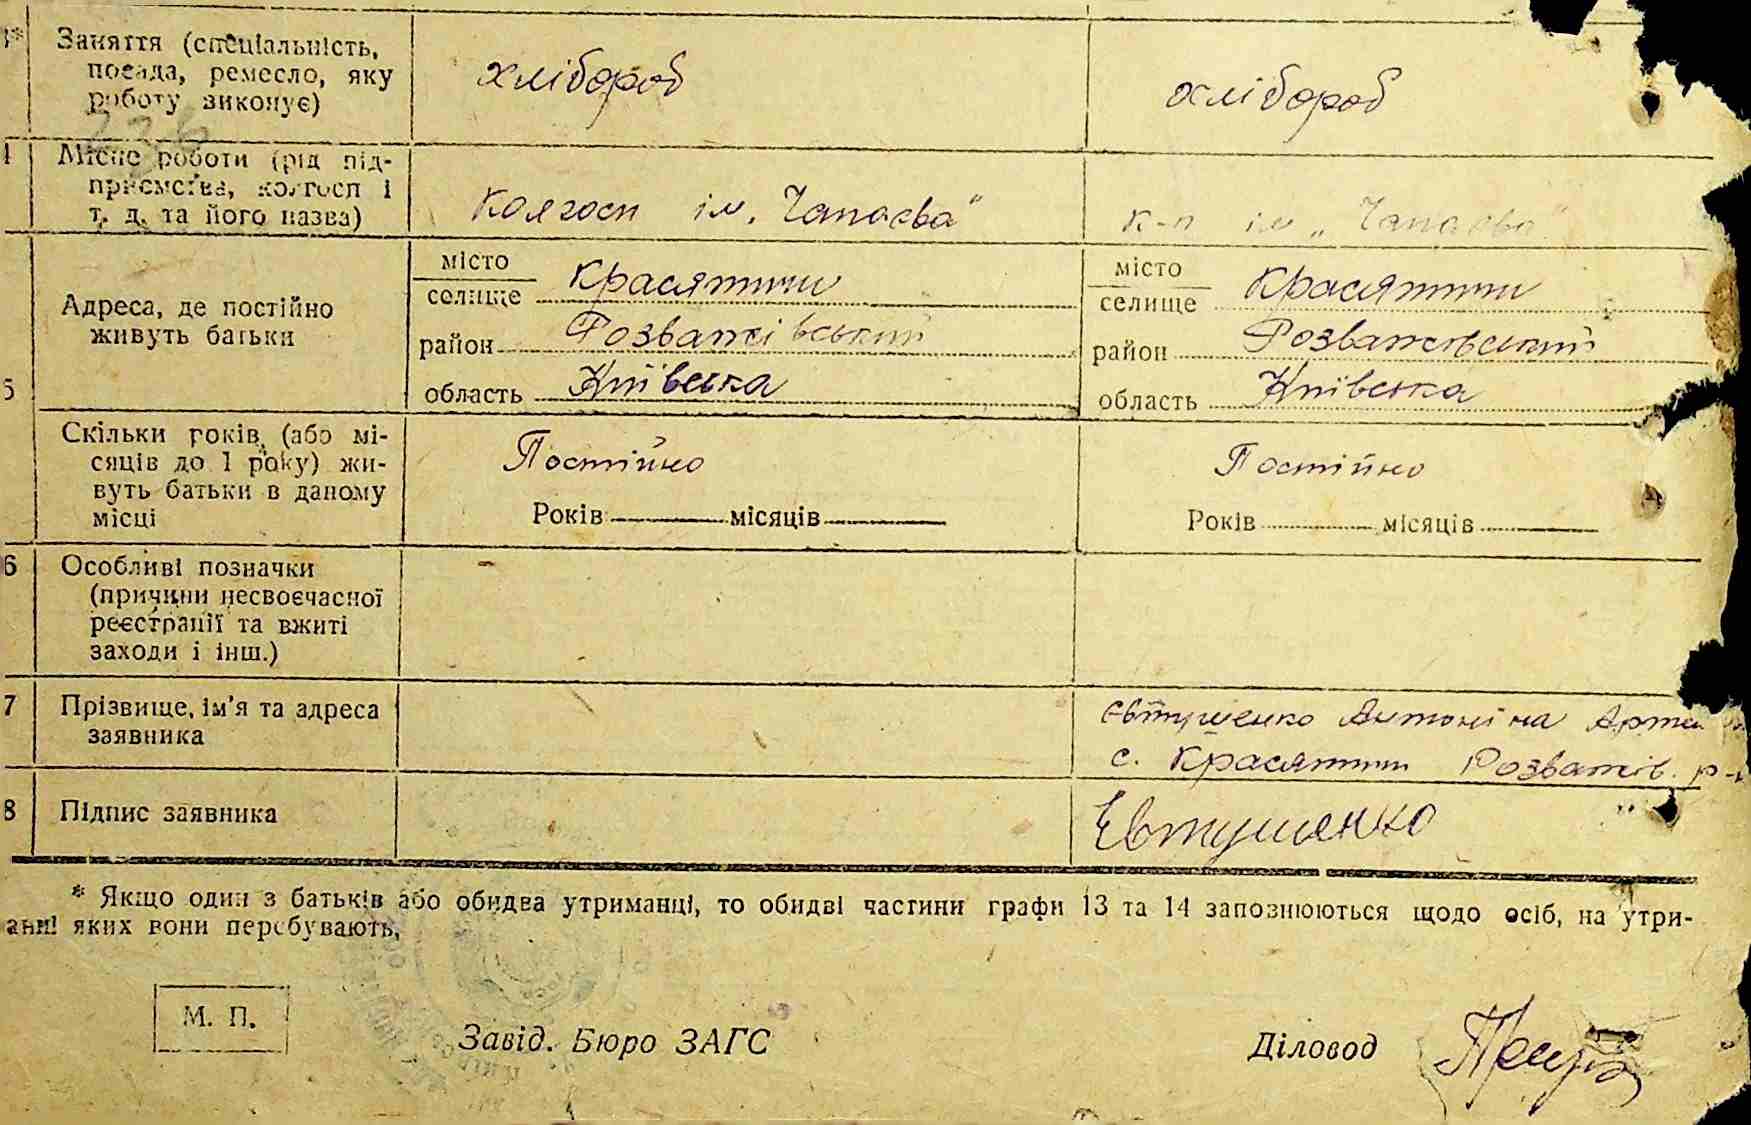 Заняття (спеціальність,
посада, ремесло, яку
роботу виконує)
хлібороб
хлібороб
Місце роботи (рід під-
приємства, колгосп і
т. д. та його назва)
Колгосп ім. Чапаєва"
к-п ім „ Чапаєва"
5
Адреса, де постійно
живуть батьки
місто
селище Красятичи
район Розважівський
область Київська
місто
селище Красятичи
район Розважівський
область Київська
Скільки років (або мі-
сяців до 1 року) жи-
вуть батьки в даному
місці
Постійно
Років місяців
Постійно
Років місяців
6
Особливі позначки
(причини несвоєчасної
реєстрації та вжиті
заходи і інш.)
7
Прізвище, ім'я та адреса
заявника
Євтушенко Антоніна
с. Красятичи Розважів. р-
8
Підпис заявника
Евтушенко
* Якщо один з батьків або обидва утриманці, то обидві частини графи 13 та 14 заповнюються щодо осіб, на утри-
анні яких вони перебувають,
М. П.
Завід. Бюро ЗАГС
Діловод